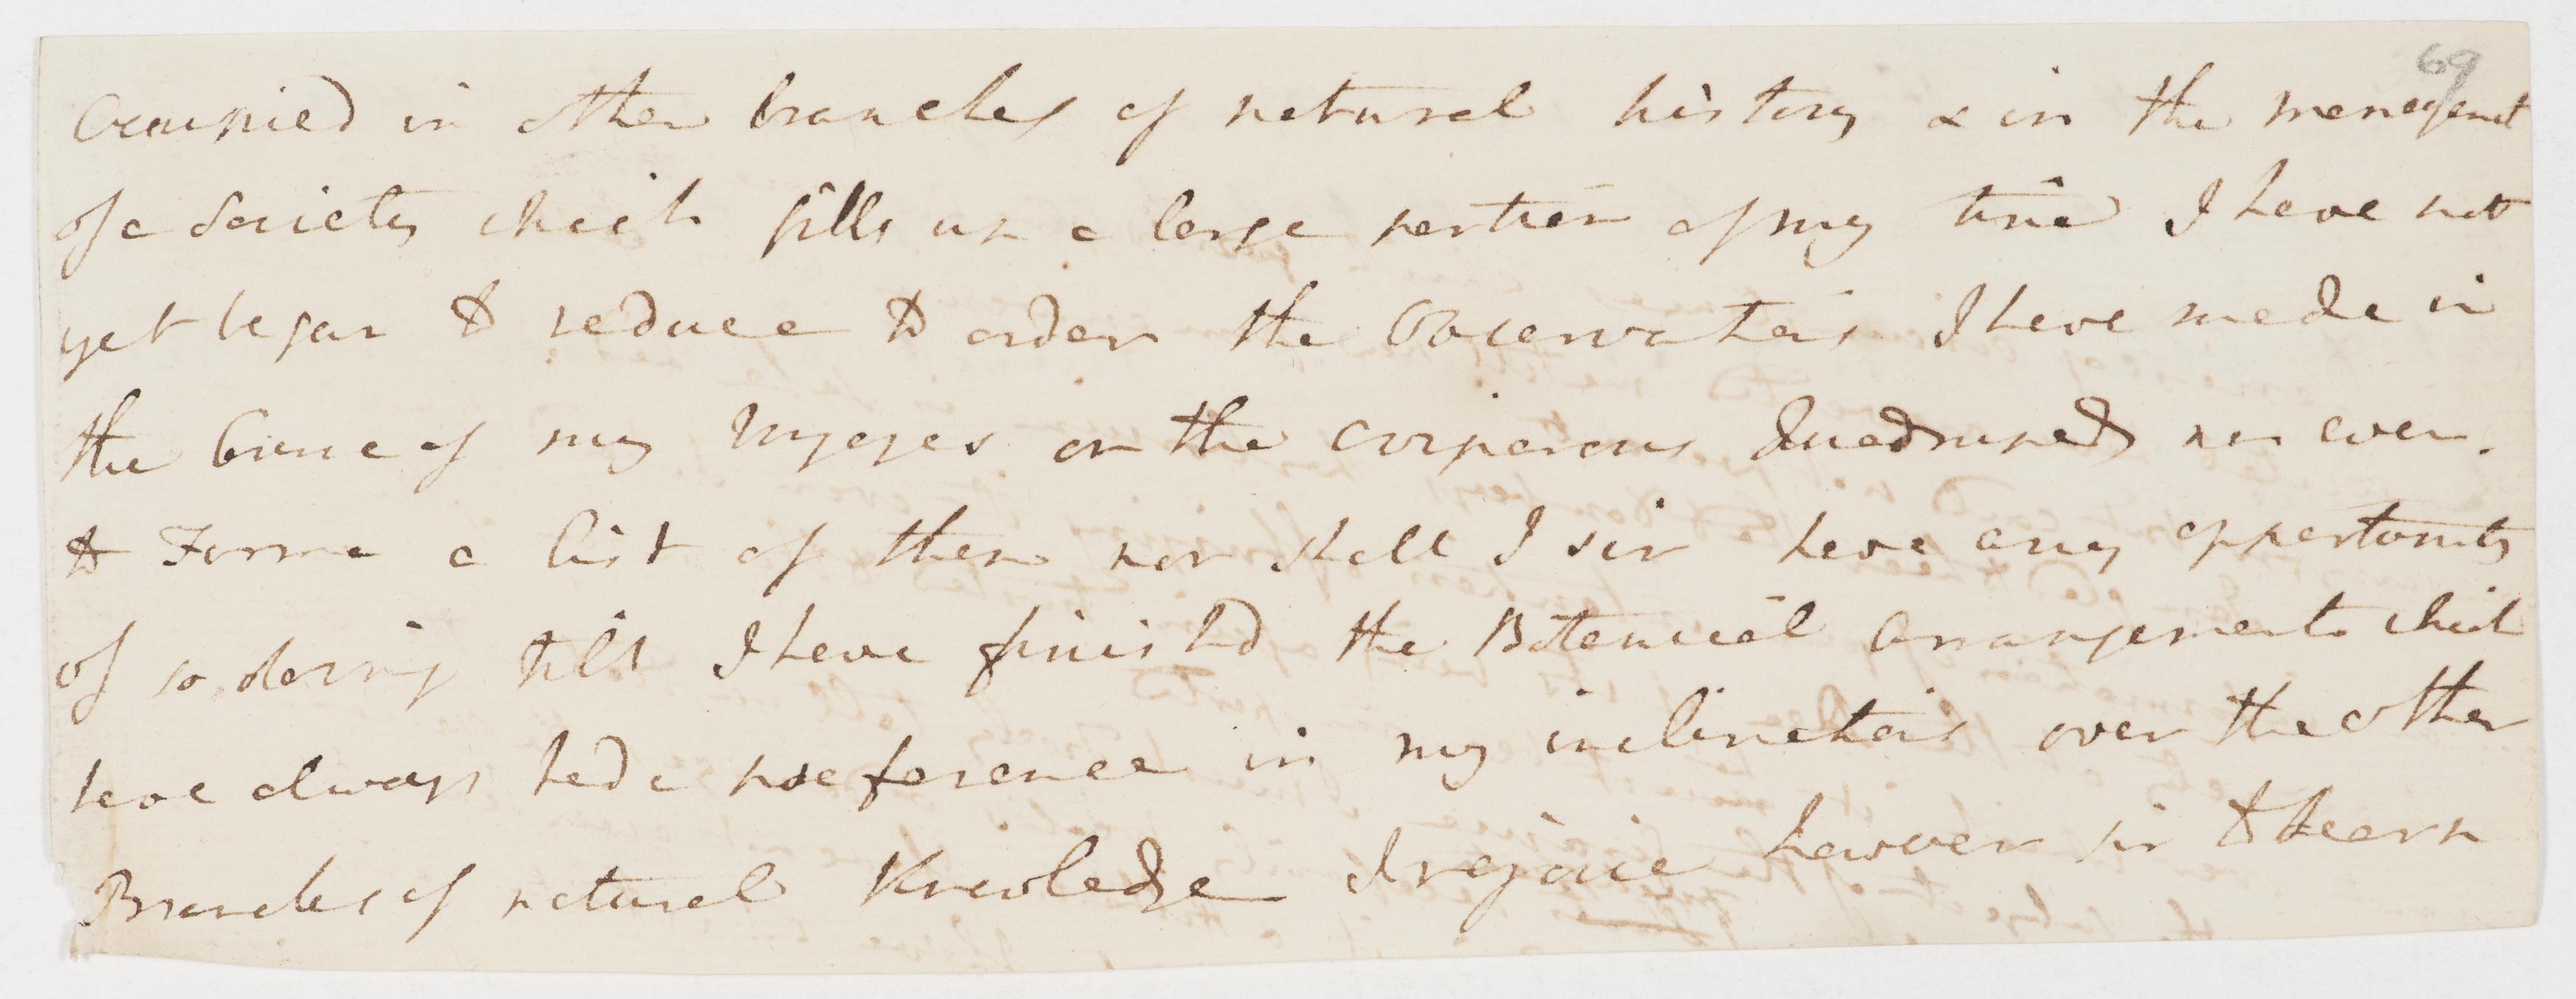 69
Occupied in other branches of natural history & in the management
of a Society which fills up a large portion of my time I have not
yet began to reduce to order the Observations I have made in
the Course of my Voyages on the oviparous Quadrupeds nor even
to Forme a list of them nor shall I sir have any opportunity
of so doing till I have finishd the Botanical arrangements which
have always had a preference in my inclinations over the other
Branches of natural Knowledge I rejoice however sir to hear